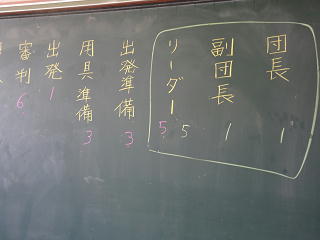 団長 1
副団長 1
リーダー 5 5
出発準備 3
用具準備 3
出発 1
審判 6